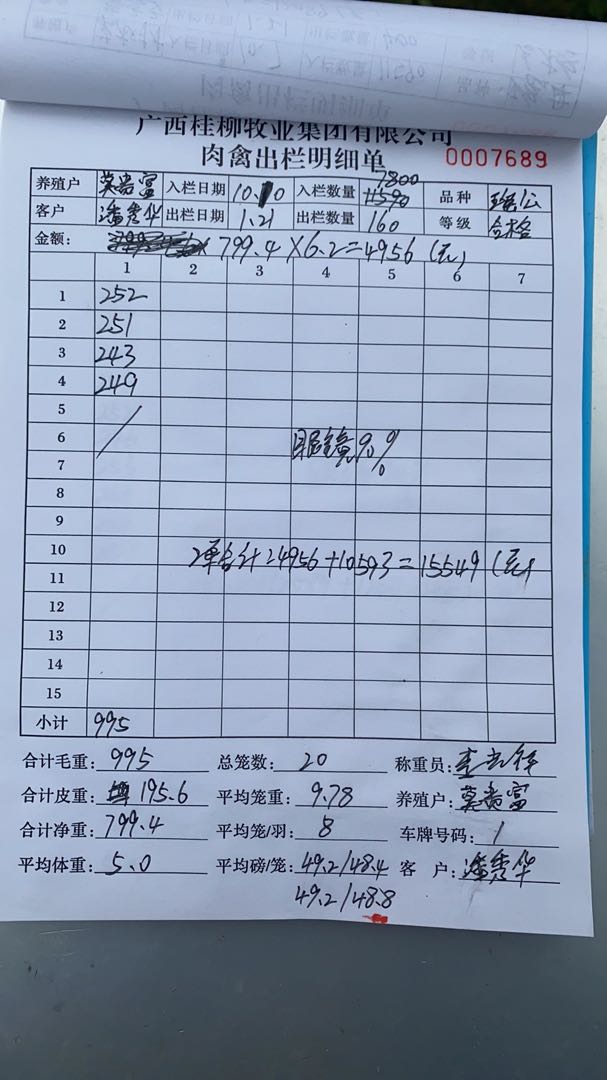 广西桂柳牧业集团有限公司
肉禽出栏明细单 0007689
7800
养殖户 莫岩富 入栏日期 10.10 入栏数量 11590 品种 瑶公
客户 潘秀华 出栏日期 1.21 出栏数量 160 等级 合格
金额: 799.4×6.2=4956(元)
1 2 3 4 5 6 7
1 252
2 251
3 243
4 249
5
6 眼镜90%
7
8
9
10 2单合计:4956+10593=15549(元)
11
12
13
14
15
小计 995
合计毛重: 995 总笼数: 20 称重员:
合计皮重: 195.6 平均笼重: 9.78 养殖户: 莫岩富
合计净重: 799.4 平均笼/羽: 8 车牌号码: /
平均体重: 5.0 平均磅/笼: 49.2/48.4 客 户: 潘秀华
49.2/48.8